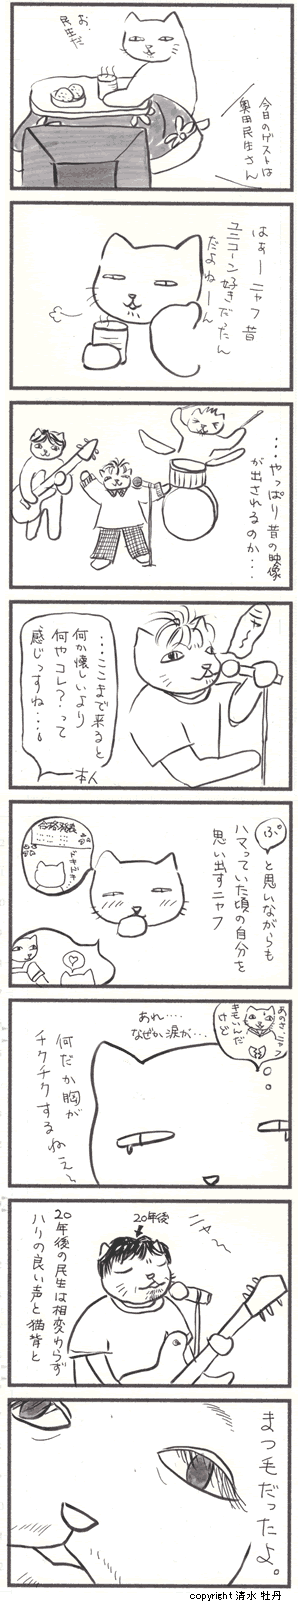 今日のゲストは
奥田民生さん
お、
民生だ
はぁー ニャフ昔
ユニコーン好きだったん
だよねーん
・・・やっぱり昔の映像
が出されるのか・・・
ニャー
・・・ここまで来ると
何か懐しいより
何やコレ？って
感じっすね・・・。
本人
ぷ。と思いながらも
ハマっていた頃の自分を
思い出すニャフ
合格発表
ドキドキ
あのさ、ニャフ
きもいんだ
けど
あれ・・・・
なぜか涙が・・・
何だか胸が
チクチクするねぇ〜
ニャ〜
20年後
20年後の民生は相変わらず
ハリの良い声と猫背と
まつ毛だったよ。
copyright 清水 牡丹